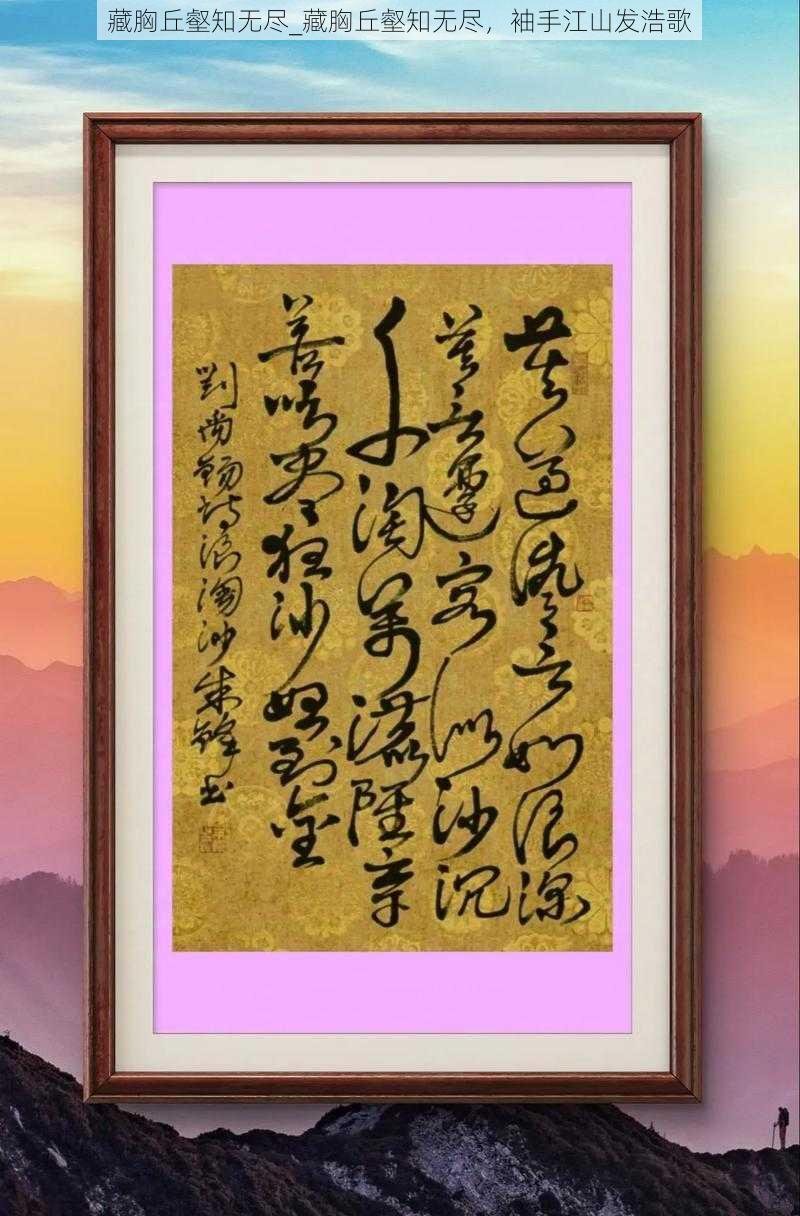 藏胸丘壑知无尽_藏胸丘壑知无尽，袖手江山发浩歌
莫道讒言如浪深
莫言遷客似沙沉
千淘萬漉雖辛
苦吹盡狂沙始到金
劉禹錫詩浪淘沙朱鋒书